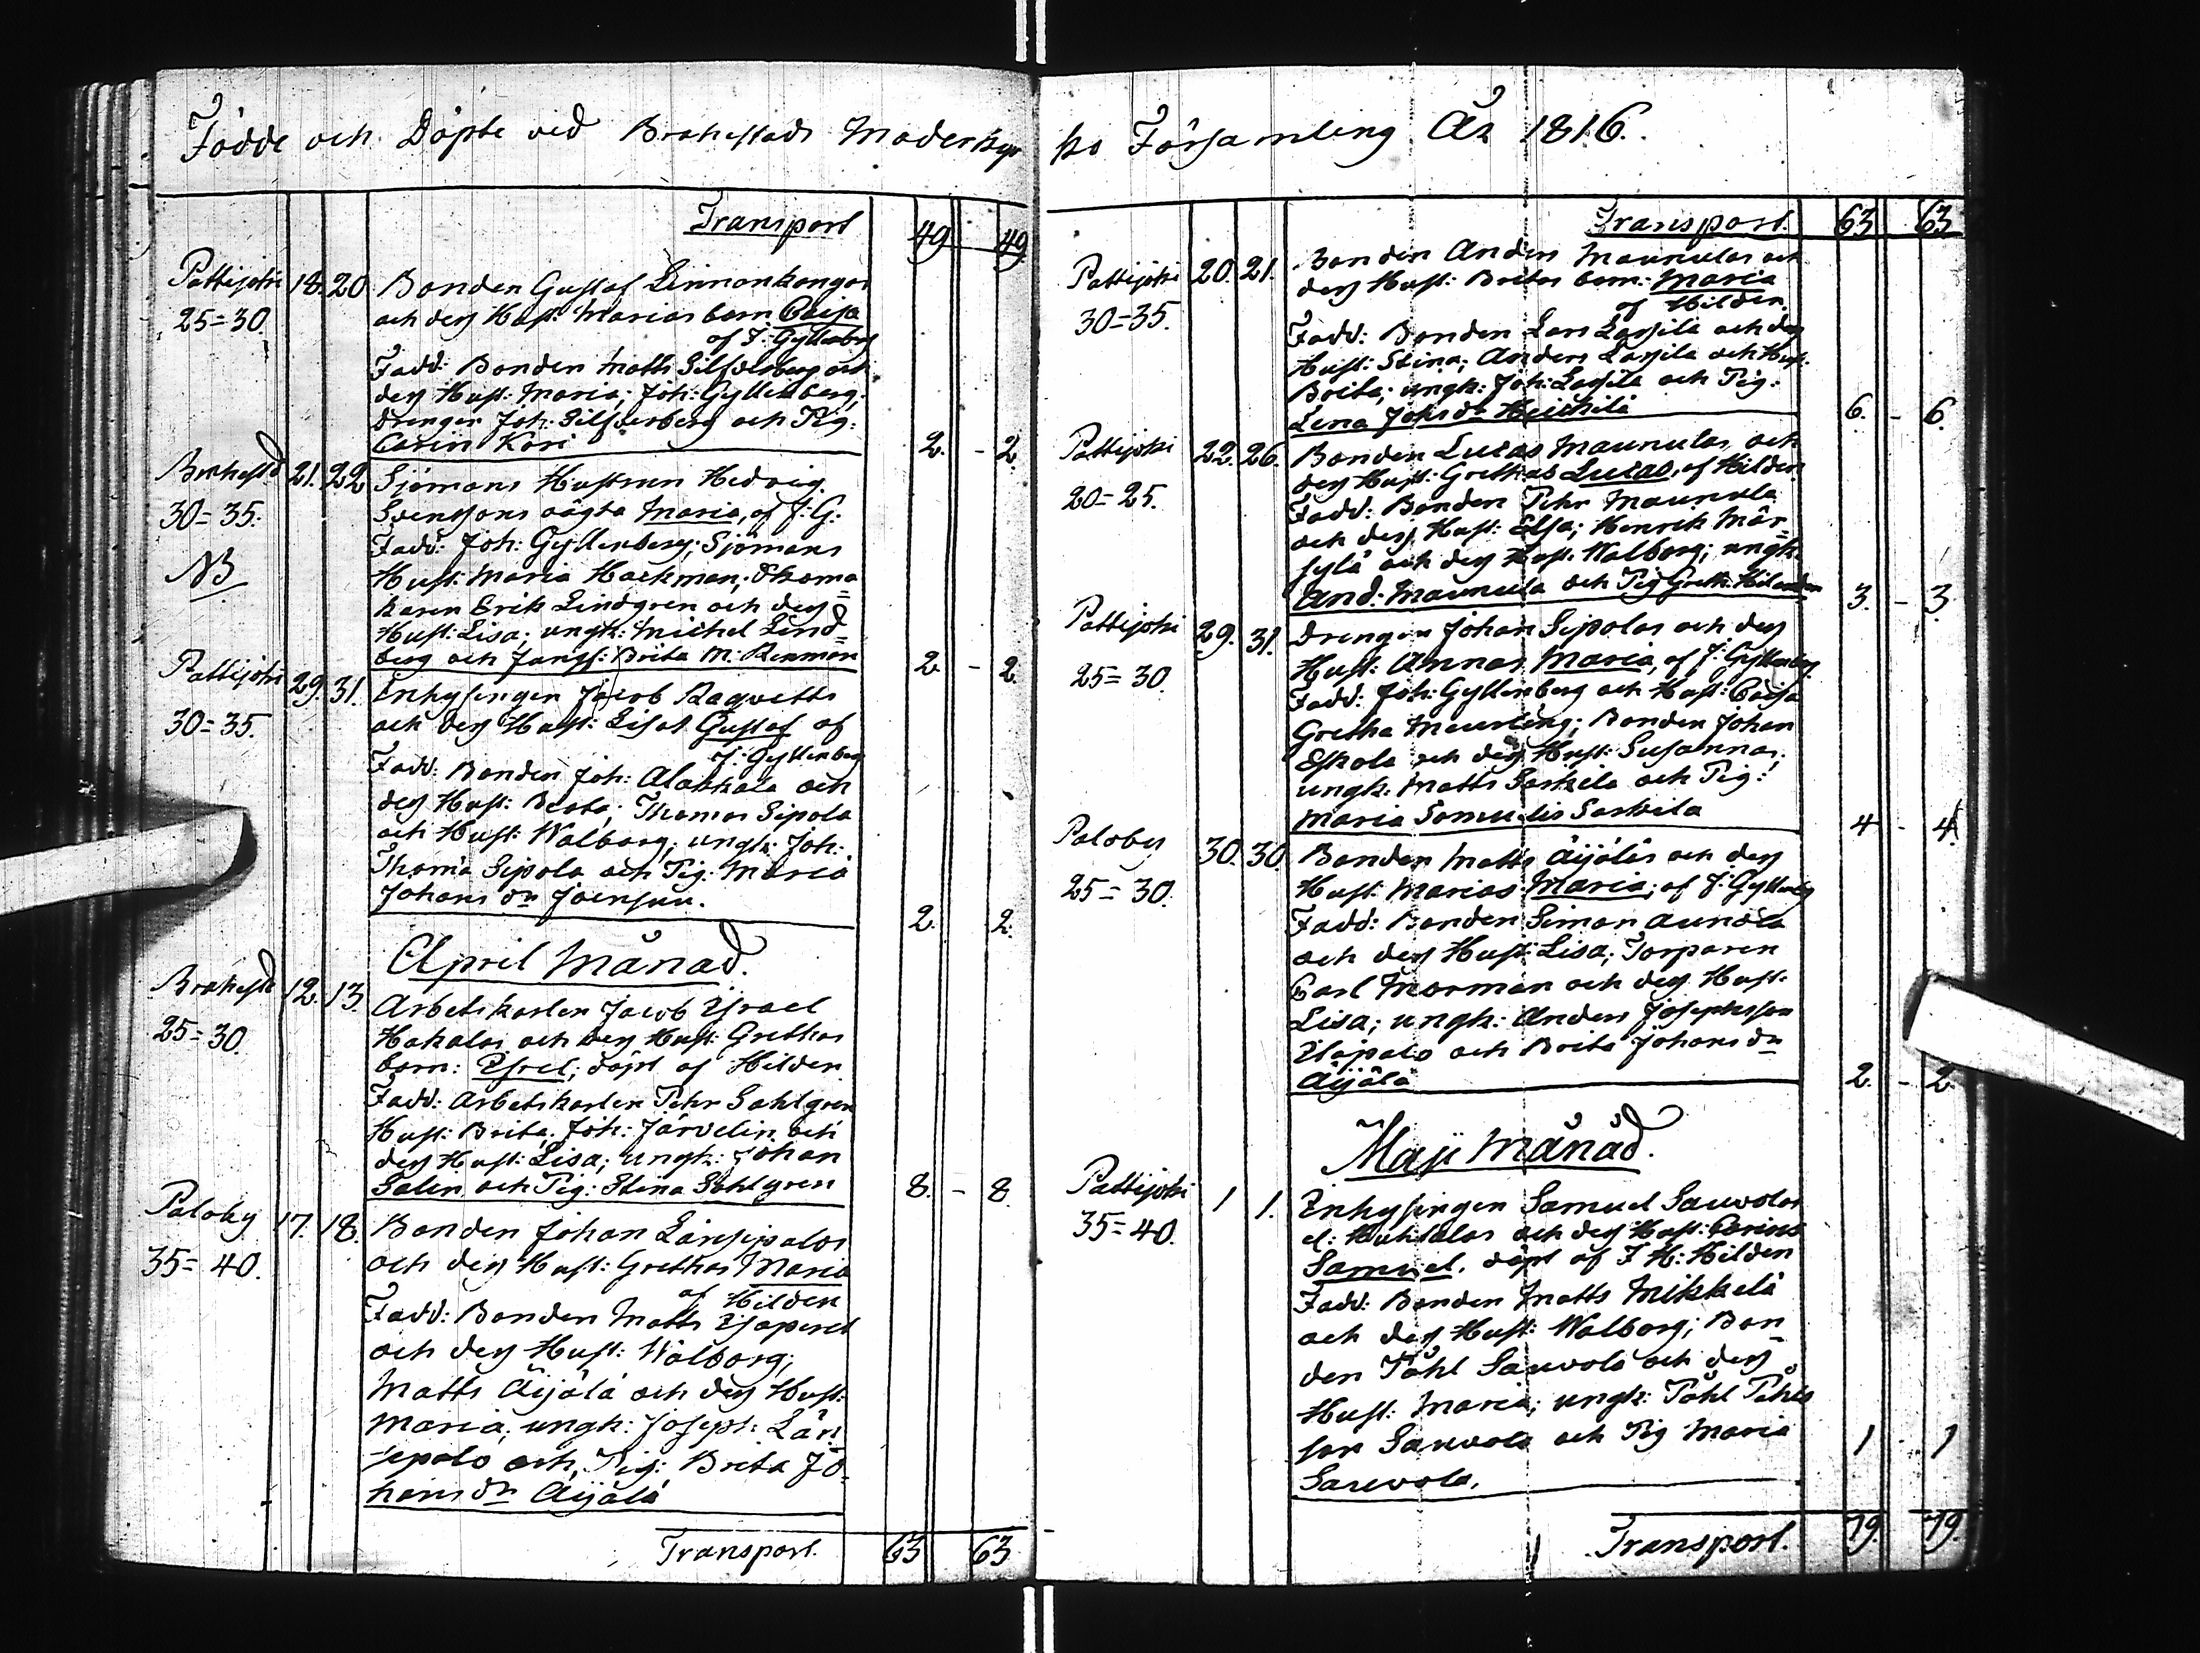 Födde och Döpte vid Brahestads Moderkyr
Transport 49 49
Pattijoki 18. 20 Bonden Gustaf Linnonkangas
25=30. och dess Hust: Marias barn Caisa
af J: Gyllenberg
Fadd: Bonden Matts Silfverberg och
dess Hust: Maria; Joh: Gyllenberg;
drengen Joh: Silfverberg och Pig:
Carin Kari 2. - 2.
Brahestd 21. 22 Sjömans Hustrun Hedvig
30=35. Svenssons oägta Maria, af J: G:
Fadd: Joh: Gyllenberg; Sjömans
NB Hust: Maria Hackman; Skoma=
karen Erik Lindgren och dess
Hust: Lisa; ungk: Michel Lind=
berg och Jungf: Brita M: Renman 2 - 2
Pattijoki 29. 31. Inhysingen Jacob Raqvetts
30=35. och dess Hust: Lisas Gustaf af
J: Gyllenberg
Fadd: Bonden Joh: Alakkala och
dess Hust: Beata; Thomas Sipola
och Hust: Walborg; ungk: Joh:
Thoma Sipola och Pig: Maria
Johans dr Joensuu. 2. 2.
April Månad.
Brahestd 12. 13. Arbetskarlen Jacob Israel
25=30. Hakalas och dess Hust: Grethas
barn: Esrel; döpt af Hilden
Fadd: Arbetskarlen Pehr Sahlgren
Hust: Brita; Joh: Jarvelin och
dess Hust: Lisa; ungk: Johan
Salin och Pig: Stina Sahlgren 8. - 8
Paloby 17. 18. Bonden Johan Länsipalos
35=40. och dess Hust: Grethas Maria
af Hilden
Fadd: Bonden Matts
och dess Hust: Walborg;
Matts Äijälä och dess Hust:
Maria; ungk: Joseph: Län
sipalo och, Pig: Brita Jo=
hans dr Äijälä
Transport. 63 63
ko Församling År 1816.
Transport. 63 63
Pattijoki 20. 21. Bonden Anders Maunulas och
30=35. dess Hust: Britas barn: Maria
af Hilden
Fadd: Bonden Lars Lassila och dess
Hust: Stina; Anders Lassila och Hust:
Brita; ungk: Joh: Lassila och Pig:
Lena Johs dr Heickilä 6. - 6.
Pattijoki 22. 26. Bonden Lucas Maunulas och
20=25. dess Hust: Grethas Lucas, af Hilden
Fadd: Bonden Pehr Maunula
och dess Hust: Elsa; Henrik Mär=
sylä och dess Hust. Walborg; ungk:
And: Maunula och Pig Greth: Hilanders 3. - 3
Pattijoki 29. 31. Drengen Johan Sipolas och dess
25=30. Hust: Annas Maria, af J: Gyllenberg
Fadd: Joh: Gyllenberg och Hust: Caisa
Gretha Meurling; Bonden Johan
Eskola och dess Hust: Susanna;
ungk: Matts Sarkila och Pig:
Maria Samuelis Sarkila 4 - 4.
Paloby 30. 30. Bonden Matts Äijäläs och dess
25=30. Hust: Marias Maria; af J: Gyllenberg
Fadd: Bonden Simon Aunola
och dess Hust: Lisa; Torparen
Carl Morman och dess Hust:
Lisa; ungk: Anders Josephsson
och Brita Johans dr
Äijälä 2. - 2
Maji Månad.
Pattijoki 1 1. Inhysingen Samuel Sauvolas
35=40. el: Huhtalas och dess Hust: Carins
Samuel, döpt af J H: Hilden
Fadd: Bonden Matts Mikkelä
och dess Hust: Walborg; Bon=
den Påhl Sauvola och dess
Hust: Maria; ungk: Påhl Pehrs
son Sauvola och Pig Maria
Sauvola. 1 - 1
Transport. 79. 79.